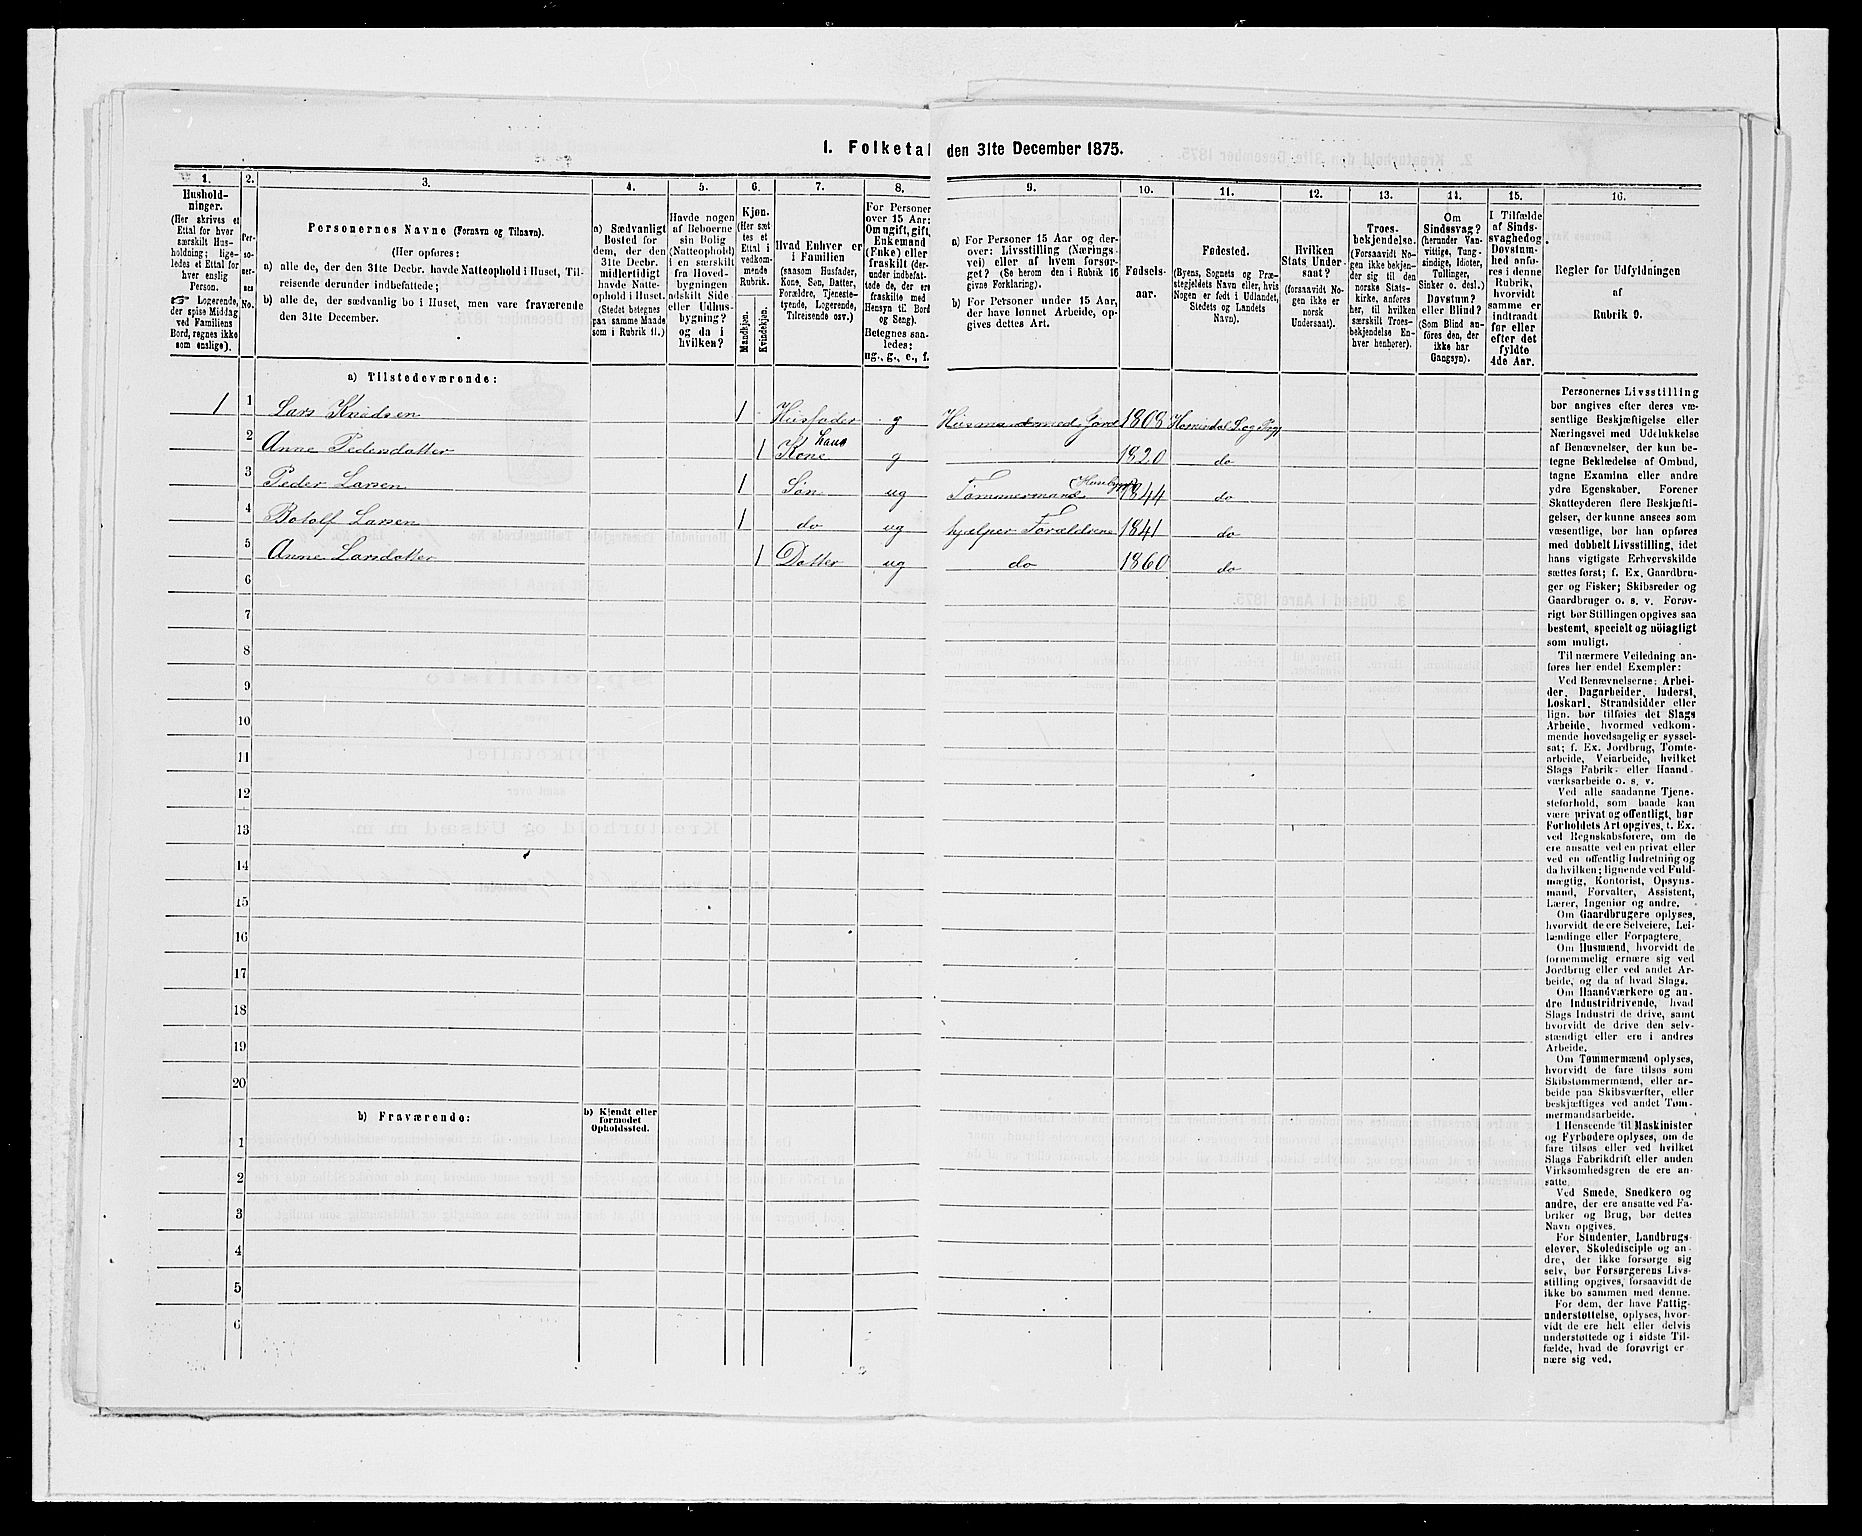 1. Folketal den 31te December 1875.
1. 2. 3. 4. 5. 6. 7. 8. 9. 10. 11. 12. 13. 14. 15. 16.
Hushold-
ninger.
(Her skrives et
Ettal for hver
særskilt Hus-
holdning; lige-
ledes et Ettal for
hver enslig
Person.
☞ Logerende,
der spise Middag
ved Familiens
Bord, regnes ikke
som enslige).
Per-
so-
ner-
nes
No.
Personernes Navne (Fornavn og Tilnavn).
(Her opføres:
a) alle de, der den 31te Decbr. havde Natteophold i Huset, Til-
reisende derunder indbefattede;
b) alle de, der sædvanlig bo i Huset, men vare fraværende
den 31te December.
a) Sædvanligt
Bosted for
dem, der den
31te Decbr.
midlertidigt
havde Natte-
ophold i Huset.
(Stedet betegnes
paa samme Maade
som i Rubrik 11.)
Havde nogen
af Beboerne
sin Bolig
(Natteophold)
i en særskilt
fra Hoved-
bygningen
adskilt Side
eller Udhus-
bygning?
og da i
hvilken?
Kjøn.
(Her sæt
tes et
Ettal i
vedkom-
mende
Rubrik.
Mandkjøn.
Kvindekjøn.
Hvad Enhver er
i Familien
(saasom Husfader,
Kone, Søn, Datter,
Forældre, Tjeneste-
tyende, Logerende,
Tilreisende osv.)
For Personer
over 15 Aar:
Om ugift, gift,
Enkemand
(Enke) eller
fraskilt (der-
under indbefat-
tede de, der ere
fraskilte med
Hensyn til Bord
og Seng).
Betegnes saa-
ledes:
ug., g., e., f.
a) For Personer 15 Aar og der-
over: Livsstilling (Nærings-
vei) eller af hvem forsør-
get? (Se herom den i Rubrik 16
givne Forklaring).
b) For Personer under 15 Aar,
der have lønnet Arbeide, op-
gives dettes Art.
Fødsels-
aar.
Fødested.
(Byens, Sognets og Præ-
stegjeldets Navn eller, hvis
Nogen er født i Udlandet,
Stedets og Landets
Navn).
Hvilken
Stats Under
saat?
(forsaavidt No-
gen ikke er
norsk
Undersaat).
Troes-
bekjendelse.
(Forsaavidt No-
gen ikke bekjen-
der sig til den
norske Stats-
kirke, anføres
her, til hvilken
særskilt Troes-
bekjendelse En-
hver henhører).
Om
Sindssvag?
(herunder Van-
vittige, Tung-
sindige, Idioter,
Tullinger,
Sinker o. desl.)
Døvstum?
eller Blind?
(Som Blind an-
føres den, der
ikke har
Gangsyn).
I Tilfælde
af Sinds-
svaghed og
Døvstum-
hed anfø-
res i denne
Rubrik,
hvorvidt
samme er
indtraadt
før eller
efter det
fyldte
4de Aar.
Regler for Udfyldningen
af
Rubrik 9.
a) Tilstedeværende:
1 1 Lars Knudsen 1 Husfader g Husmand med Jord 1808 Hornindal S. og Prgj
2 Anne Pedersdatter 1 Hans Kone g 1820 do
3 Peder Larsen 1 Søn ug Tømmermand 1844 do
4 Botolf Larsen 1 do ug hjælper Forældrene 1841 do
5 Anne Larsdatter 1 Datter ug do 1860 do
6
7
8
9
10
11
12
13
14
15
16
17
18
19
20
b) Fraværende:
b) Kjendt eller
formodet
Opholdssted.
1
2
3
4
5
6
Personernes Livsstilling
bør angives efter deres væ-
sentlige Beskjæftigelse eller
Næringsvei med Udelukkelse
af Benævnelser, der kun be-
tegne Beklædelse af Ombud,
tagne Examina eller andre
ydre Egenskaber. Forener
Skatteyderen flere Beskjæfti-
gelser, der kunne ansees som
væsentlige, bør han opføres
med dobbelt Livsstilling, idet
hans vigtigste Erhvervskilde
sættes først; f. Ex. Gaardbru-
ger og Fisker; Skibsreder og
Gaardbruger o. s. v. Forøv-
rigt bør Stillingen opgives saa
bestemt, specielt og nöiagtigt
som muligt.
Til nærmere Veiledning an-
føres her endel Exempler:
Ved Benævnelserne: Arbei-
der, Dagarbeider, Inderst,
Løskarl, Strandsidder eller
lign. bør tilføies det Slags
Arbeide, hvormed vedkom-
mende hovedsagelig er syssel-
sat; f. Ex. Jordbrug, Tomte-
arbeide, Veiarbeide, hvilket
Slags Fabrik- eller Haand-
værksarbeide o. s. v.
Ved alle saadanne Tjene-
steforhold, som baade kan
være privat og offentligt, bør
Forholdets Art opgives, t. Ex.
ved Regnskabsførere, om de
ere ansatte ved en privat eller
ved en offentlig Indretning og
da hvilken; lignende ved Fuld-
mægtig, Kontorist, Opsyns-
mand, Forvalter, Assistent,
Lærer, Ingeniør og andre.
Om Gaardbrugere oplyses,
hvorvidt de ere Selveiere, Lei-
lændinge eller Forpagtere.
Om Husmænd, hvorvidt de
fornemmelig ernære sig ved
Jordbrug eller ved andet Ar-
beide, og da af hvad Slags.
Om Haandværkere og an-
dre Industridrivende, hvad
Slags Industri de drive, samt
hvorvidt de drive den selv-
stændigt eller ere i andres
Arbeide.
Om Tømmermænd oplyses,
hvorvidt de fare tilsøs som
Skibstømmermænd, eller ar-
beide paa Skibsværfter, eller
beskjæftiges ved andet Tøm-
mermandsarbeide.
I Henseende til Maskinister
og Fyrbødere oplyses, om de
fare tilsøs eller ved hvilket
Slags Fabrikdrift eller anden
Virksomhedsgren de ere an-
satte.
Ved Smede, Snedkere og
andre, der ere ansatte ved Fa-
briker og Brug, bør dettes
Navn opgives.
For Studenter, Landbrugs
elever, Skoledisciple og an-
dre, der ikke forsørge sig
selv, bør Forsørgerens Livs-
stilling opgives, forsaavidt de
ikke bo sammen med denne.
For dem, der have Fattig-
understøttelse, oplyses, hvor-
vidt de ere helt eller delvis
understøttede og i sidste Til-
fælde, hvad de forøvrigt er
nære sig ved.